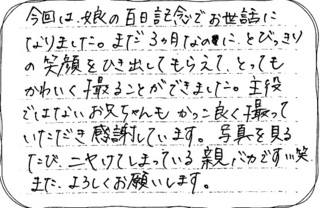 今回は、娘の百日記念でお世話に
なりました。まだ3ヶ月なのに、とびっきり
の笑顔をひき出してもらえて、とっても
かわいく撮ることができました。主役
ではないお兄ちゃんもかっこ良く撮って
いただき感謝しています。写真を見る
たび、ニヤけてしまっている親バカです!!!笑
また、よろしくお願いします。